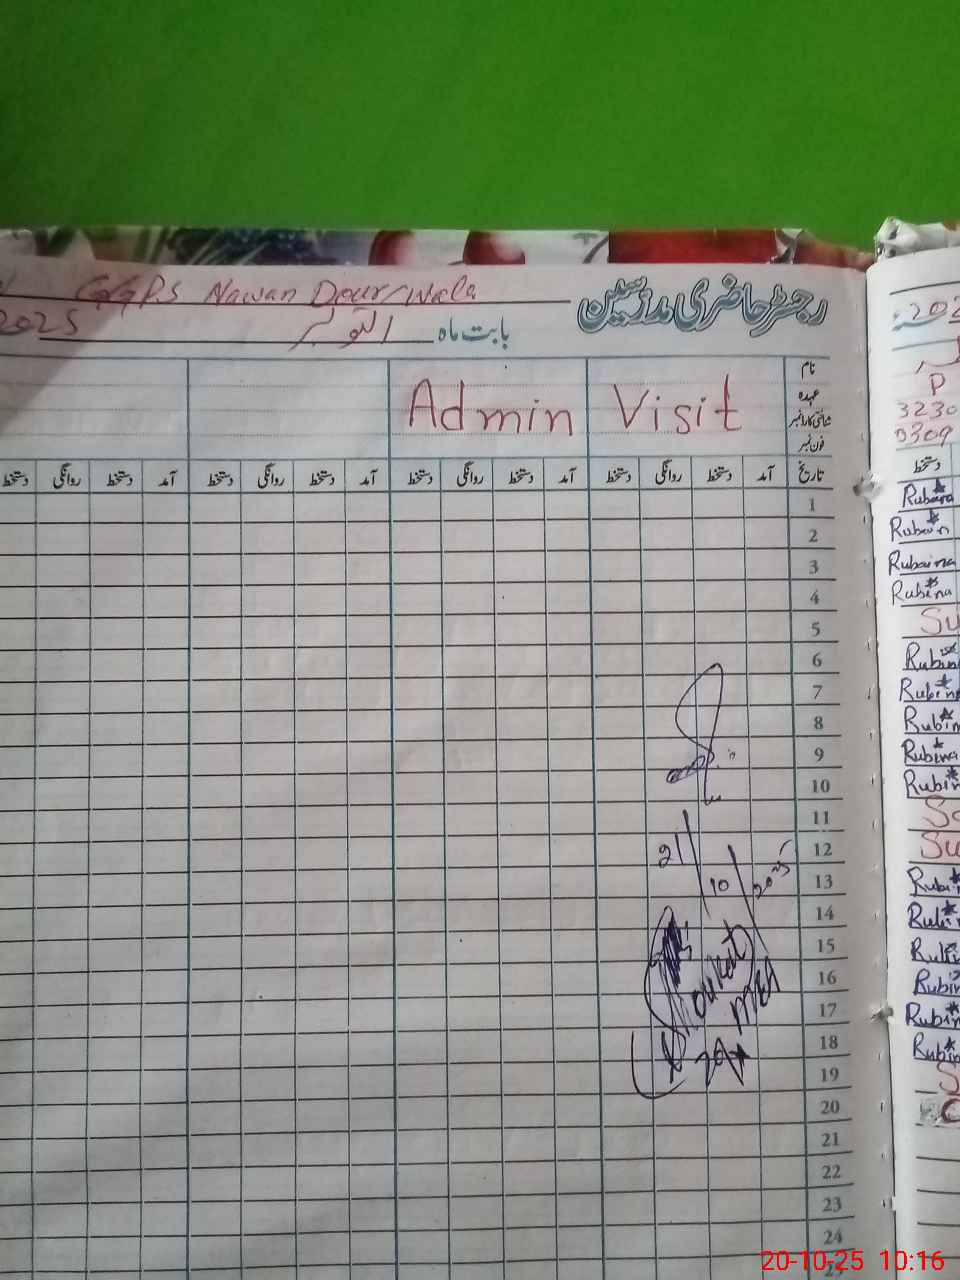 GGPS Nawan Dour/wala
رجسٹر حاضری مدرسین
بابت ماہ اکتوبر 2025
نام
عہدہ
شناختی کارڈ نمبر
فون نمبر
Admin Visit
تاریخ آمد دستخط روانگی دستخط آمد دستخط روانگی دستخط آمد دستخط روانگی دستخط آمد روانگی دستخط
1
2
3
4
5
6
7
8
9
10
11
12
13
14
15
16
17
18
19
20
21
22
23
24
25
21/10/2025
Shoukat
MEA
P
3230
0309
دستخط
Rubina
Rubina
Rubina
Su
Rubin
Rubin
Rubin
Rubina
Rubin
Su
Rubin
Rubin
Rubin
20-10-25 10:16